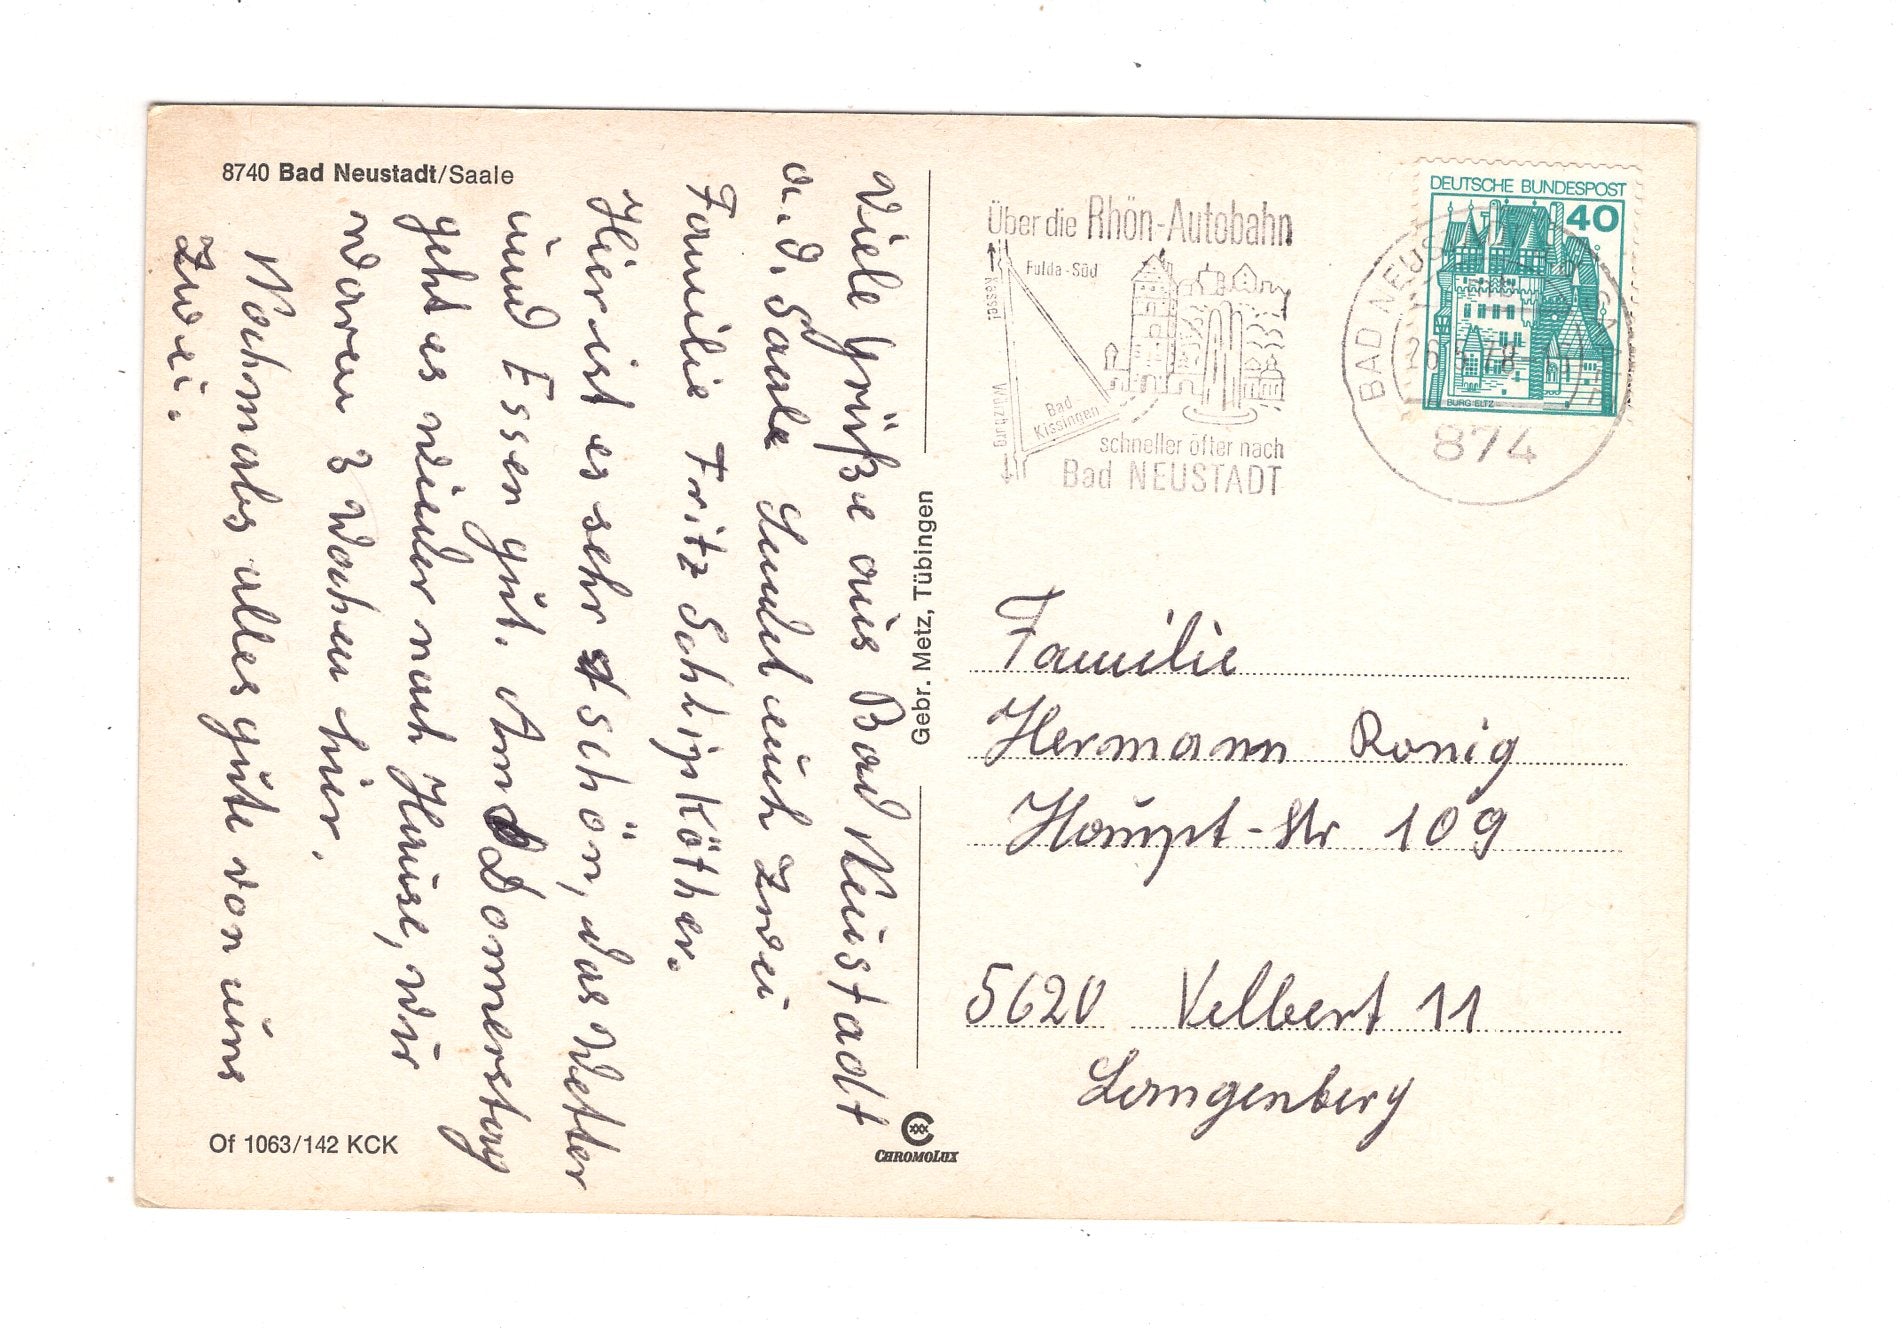 8740 Bad Neustadt/Saale
Viele Grüße aus Bad Neustadt
a.d. Saale Sendet euch Zwei
Familie Fritz Schlipköther.
Hier ist es sehr schön, das Wetter
und Essen gut. Am Donnerstag
geht es wieder nach Hause, wir
waren 3 Wochen hier.
Nochmals alles gute von uns
Zwei.
Of 1063/142 KCK
Gebr. Metz, Tübingen
CHROMOLUX
Über die Rhön-Autobahn
Fulda-Süd
Kassel
Würzburg
Bad-
Kissingen
schneller öfter nach
Bad NEUSTADT
DEUTSCHE BUNDESPOST
40
BURG ELTZ
BAD NEUS
78
874
Familie
Hermann Ronig
Haupt-Str 109
5620 Velbert 11
Langenberg